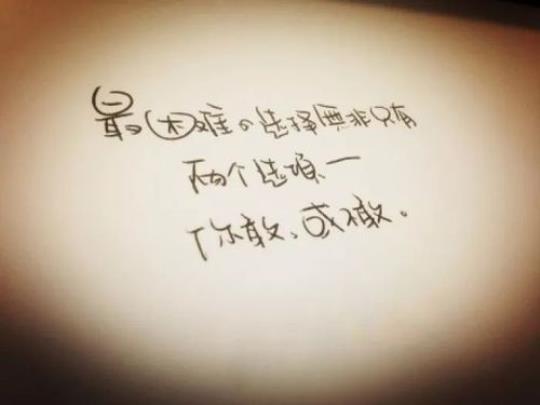 最困难の选择無非只有
两个选项—
你敢、或不敢。